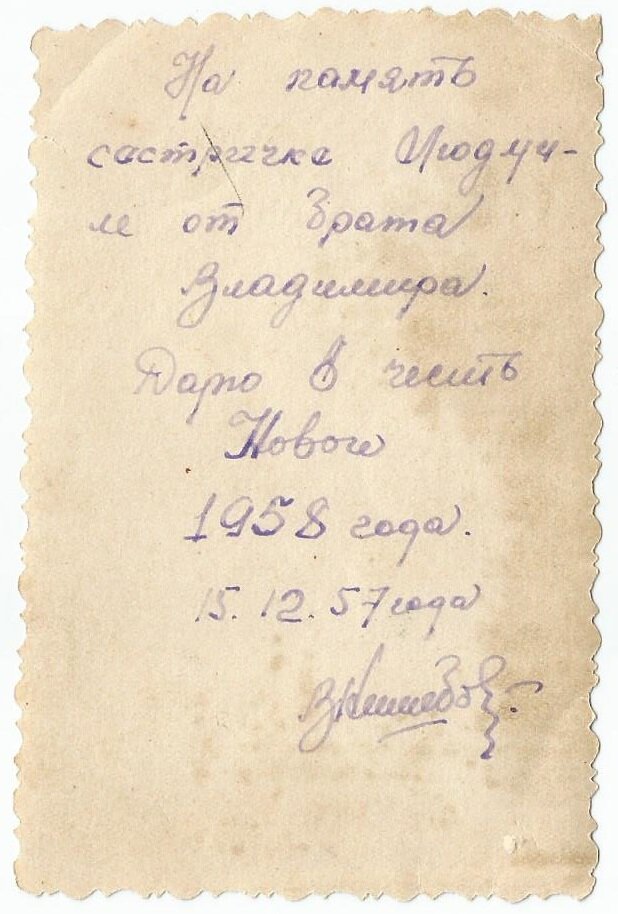 На память
сестричке Людми-
ле от брата
Владимира.
Дарю в честь
Нового
1958 года.
15.12.57 года